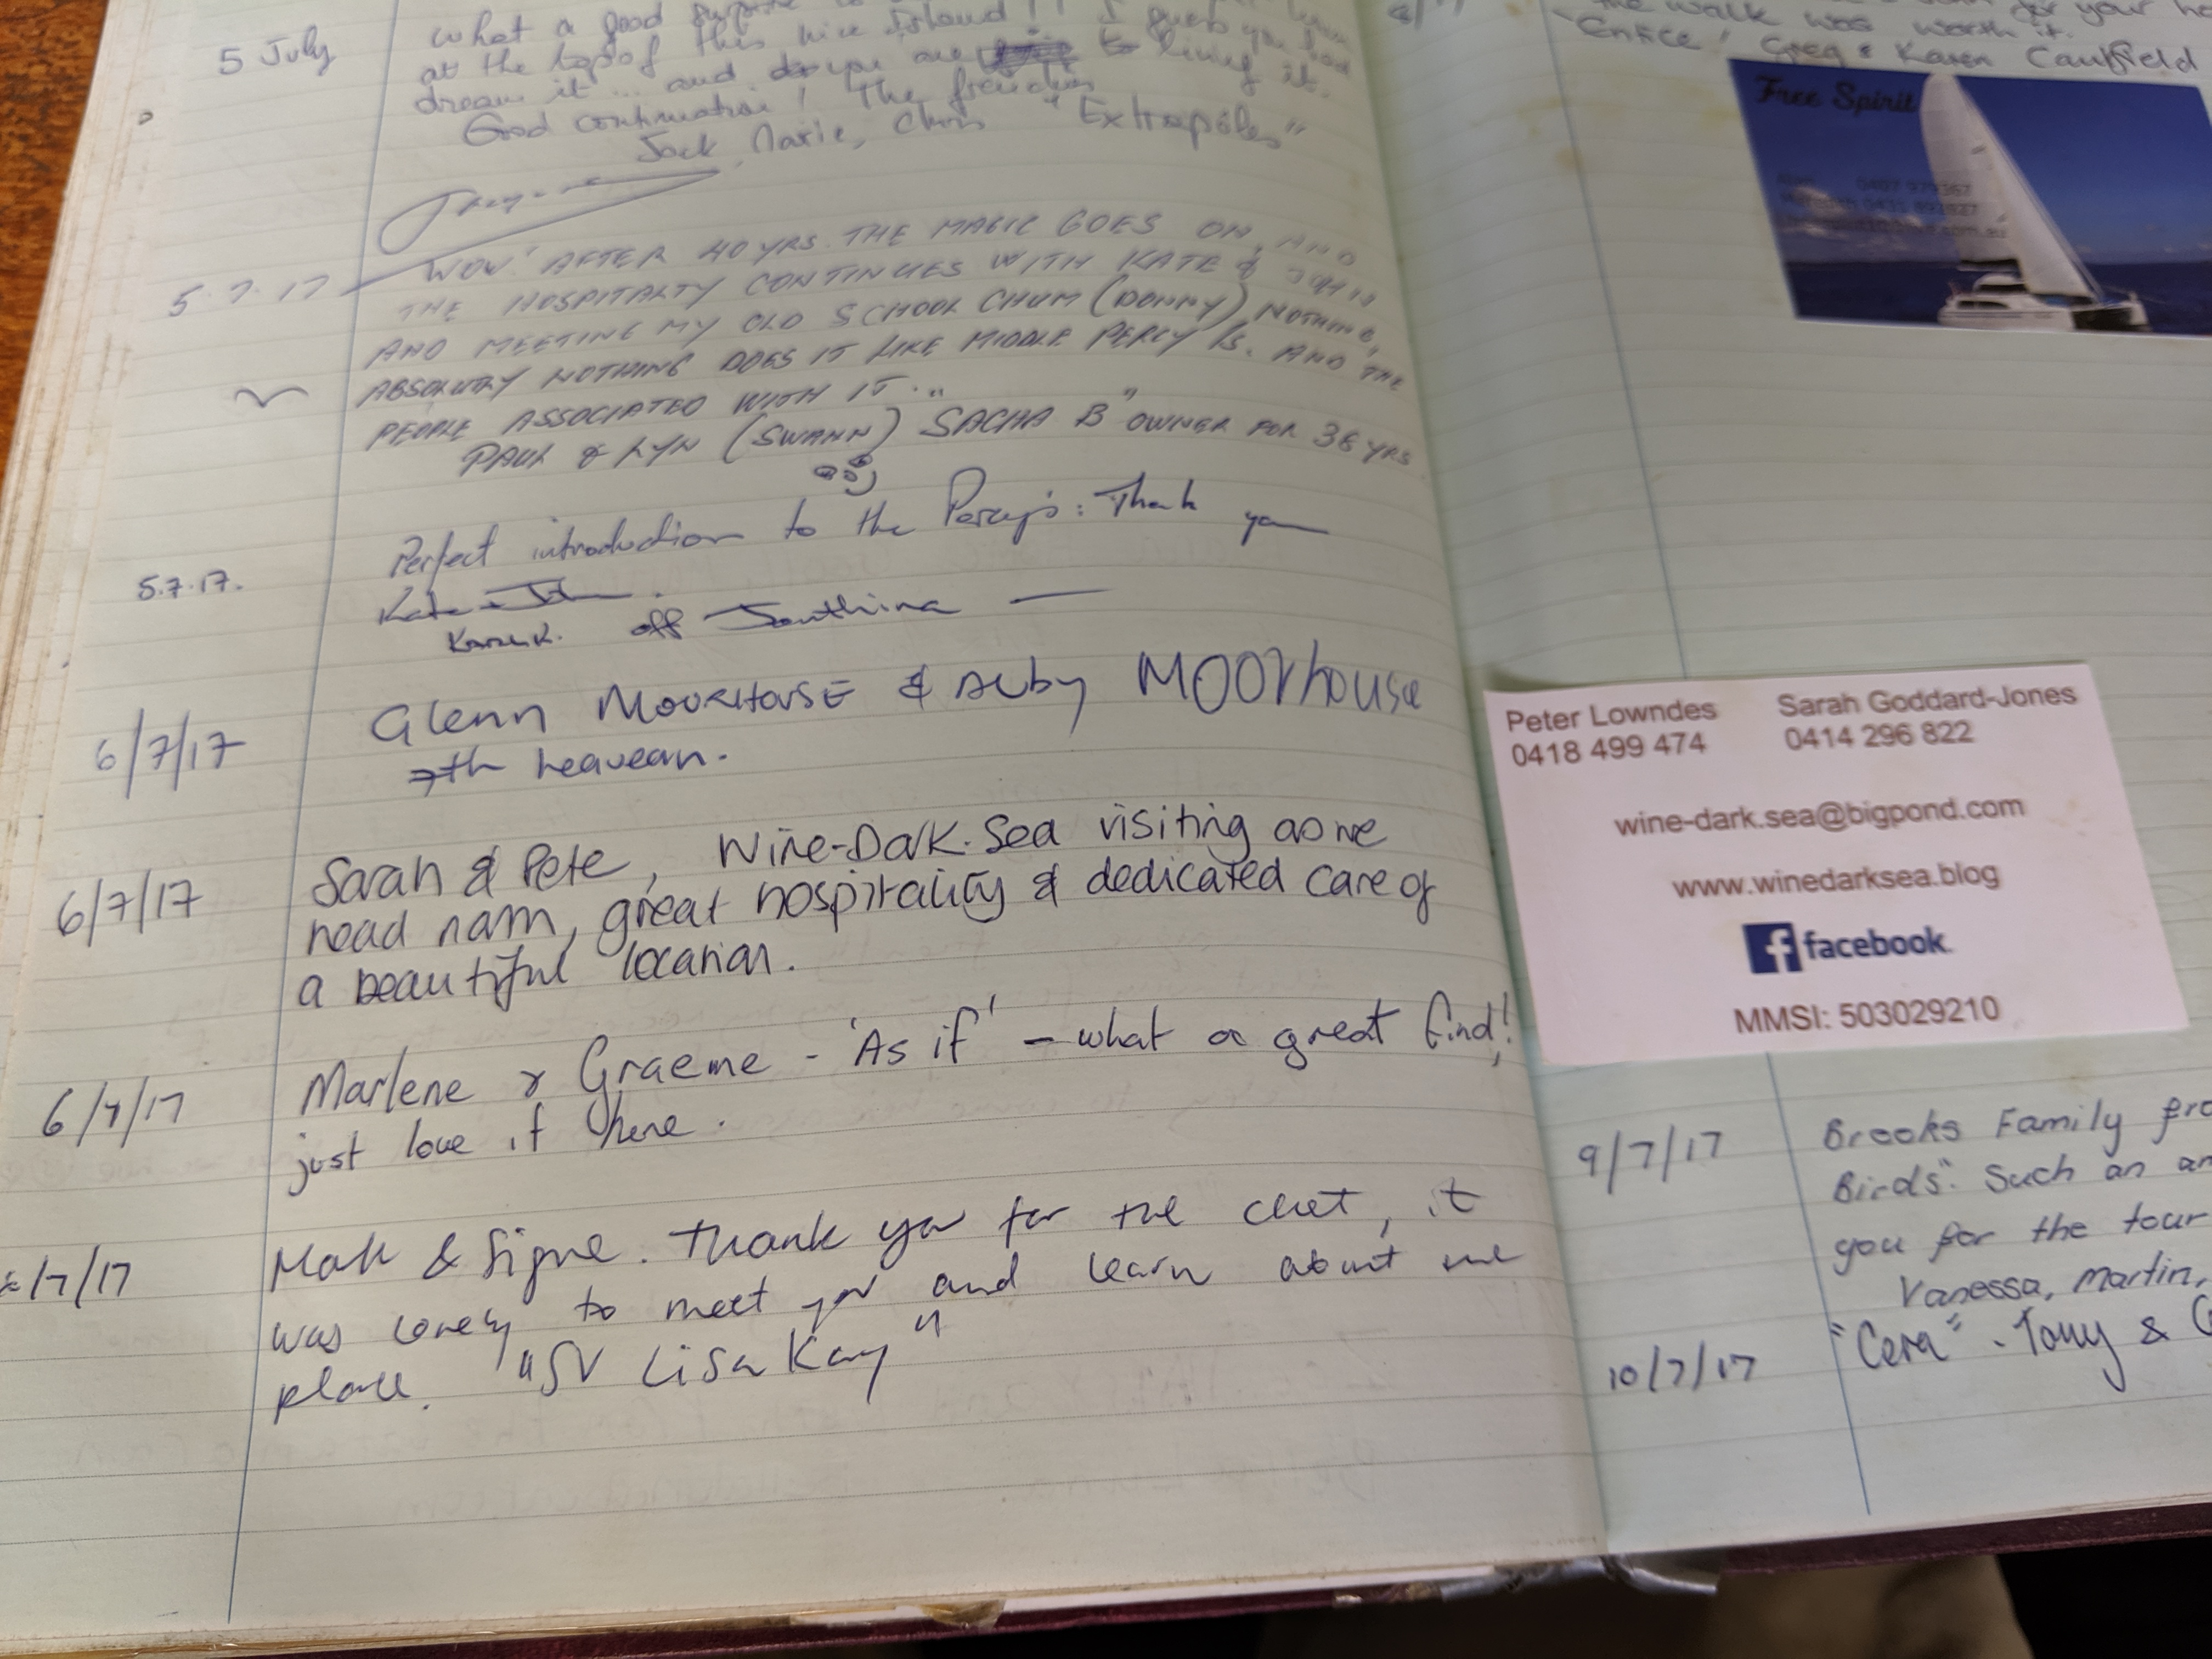 5 July
what a good surprise to
at the top of this nice island!! I guess you had
dream it... and do you are to living it.
Good continuation! The frenchies
Jack, Marie, Chris "Extrapôles"
5.7.17
WOW! AFTER 40 YRS. THE MAGIC GOES ON, AND
THE HOSPITALTY CONTINUES WITH KATE & JOHN
AND MEETING MY OLD SCHOOL CHUM (DONNY) NOTHING,
ABSOLUTRY NOTHING DOES IT LIKE MIDDLE PERCY IS. AND THE
PEOPLE ASSOCIATED WITH IT..
PAUL & LYN (SWANN) "SACHA B" OWNER FOR 36 YRS
5.7.17.
Perfect introduction to the Percy's. Thank you
Kate & John.
Karen K. off
6/7/17
Glenn MOORHOUSE & Auby MOORhouse
7th heavean.
6/7/17
Sarah & Pete, Wine-Dark-Sea visiting as we
head nam, great hospitality & dedicated care of
a beautiful location.
6/7/17
Marlene & Graeme - 'As if' - what a great find!
just love it here.
/7/17
Matt & Signe. Thank you for the chat, it
was lovely to meet you and learn about the
place. "SV Lisa Kay"
8/
the walk was worth it.
'Entice' Greg & Karen Caulfield
Free Spirit
Peter Lowndes Sarah Goddard-Jones
0418 499 474 0414 296 822
wine-dark.sea@bigpond.com
www.winedarksea.blog
f facebook
MMSI: 503029210
9/7/17
Brooks Family fro
Birds". Such an am
you for the tour
Vanessa, Martin,
10/7/17
"Cera". Tony & G